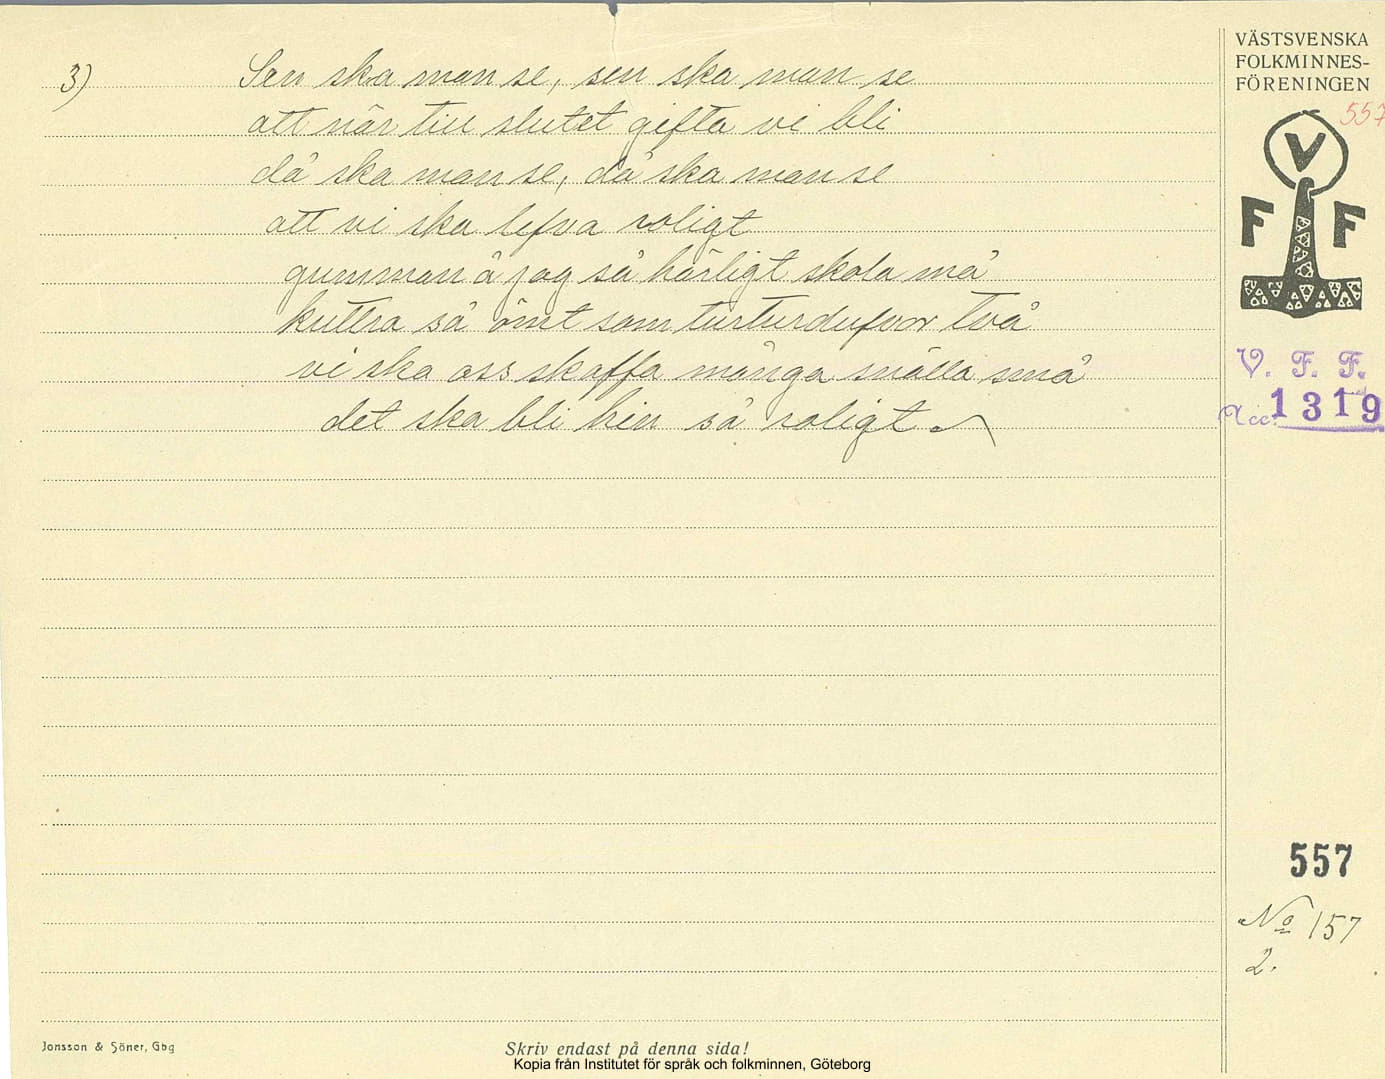 3) Sen ska man se, sen ska man se
att när till slutet gifta vi bli
då ska man se, då ska man se
att vi ska lefva roligt
gumman å jag så härligt skola må
kuttra så ömt som turturdufvor två
vi ska oss skaffa många snälla små
det ska bli hin så roligt
VÄSTSVENSKA
FOLKMINNES-
FÖRENINGEN
557
V
F F
V. F. F.
Acc. 1319
557
No 157
2.
Jonsson & Söner, Gbg
Skriv endast på denna sida!
Kopia från Institutet för språk och folkminnen, Göteborg